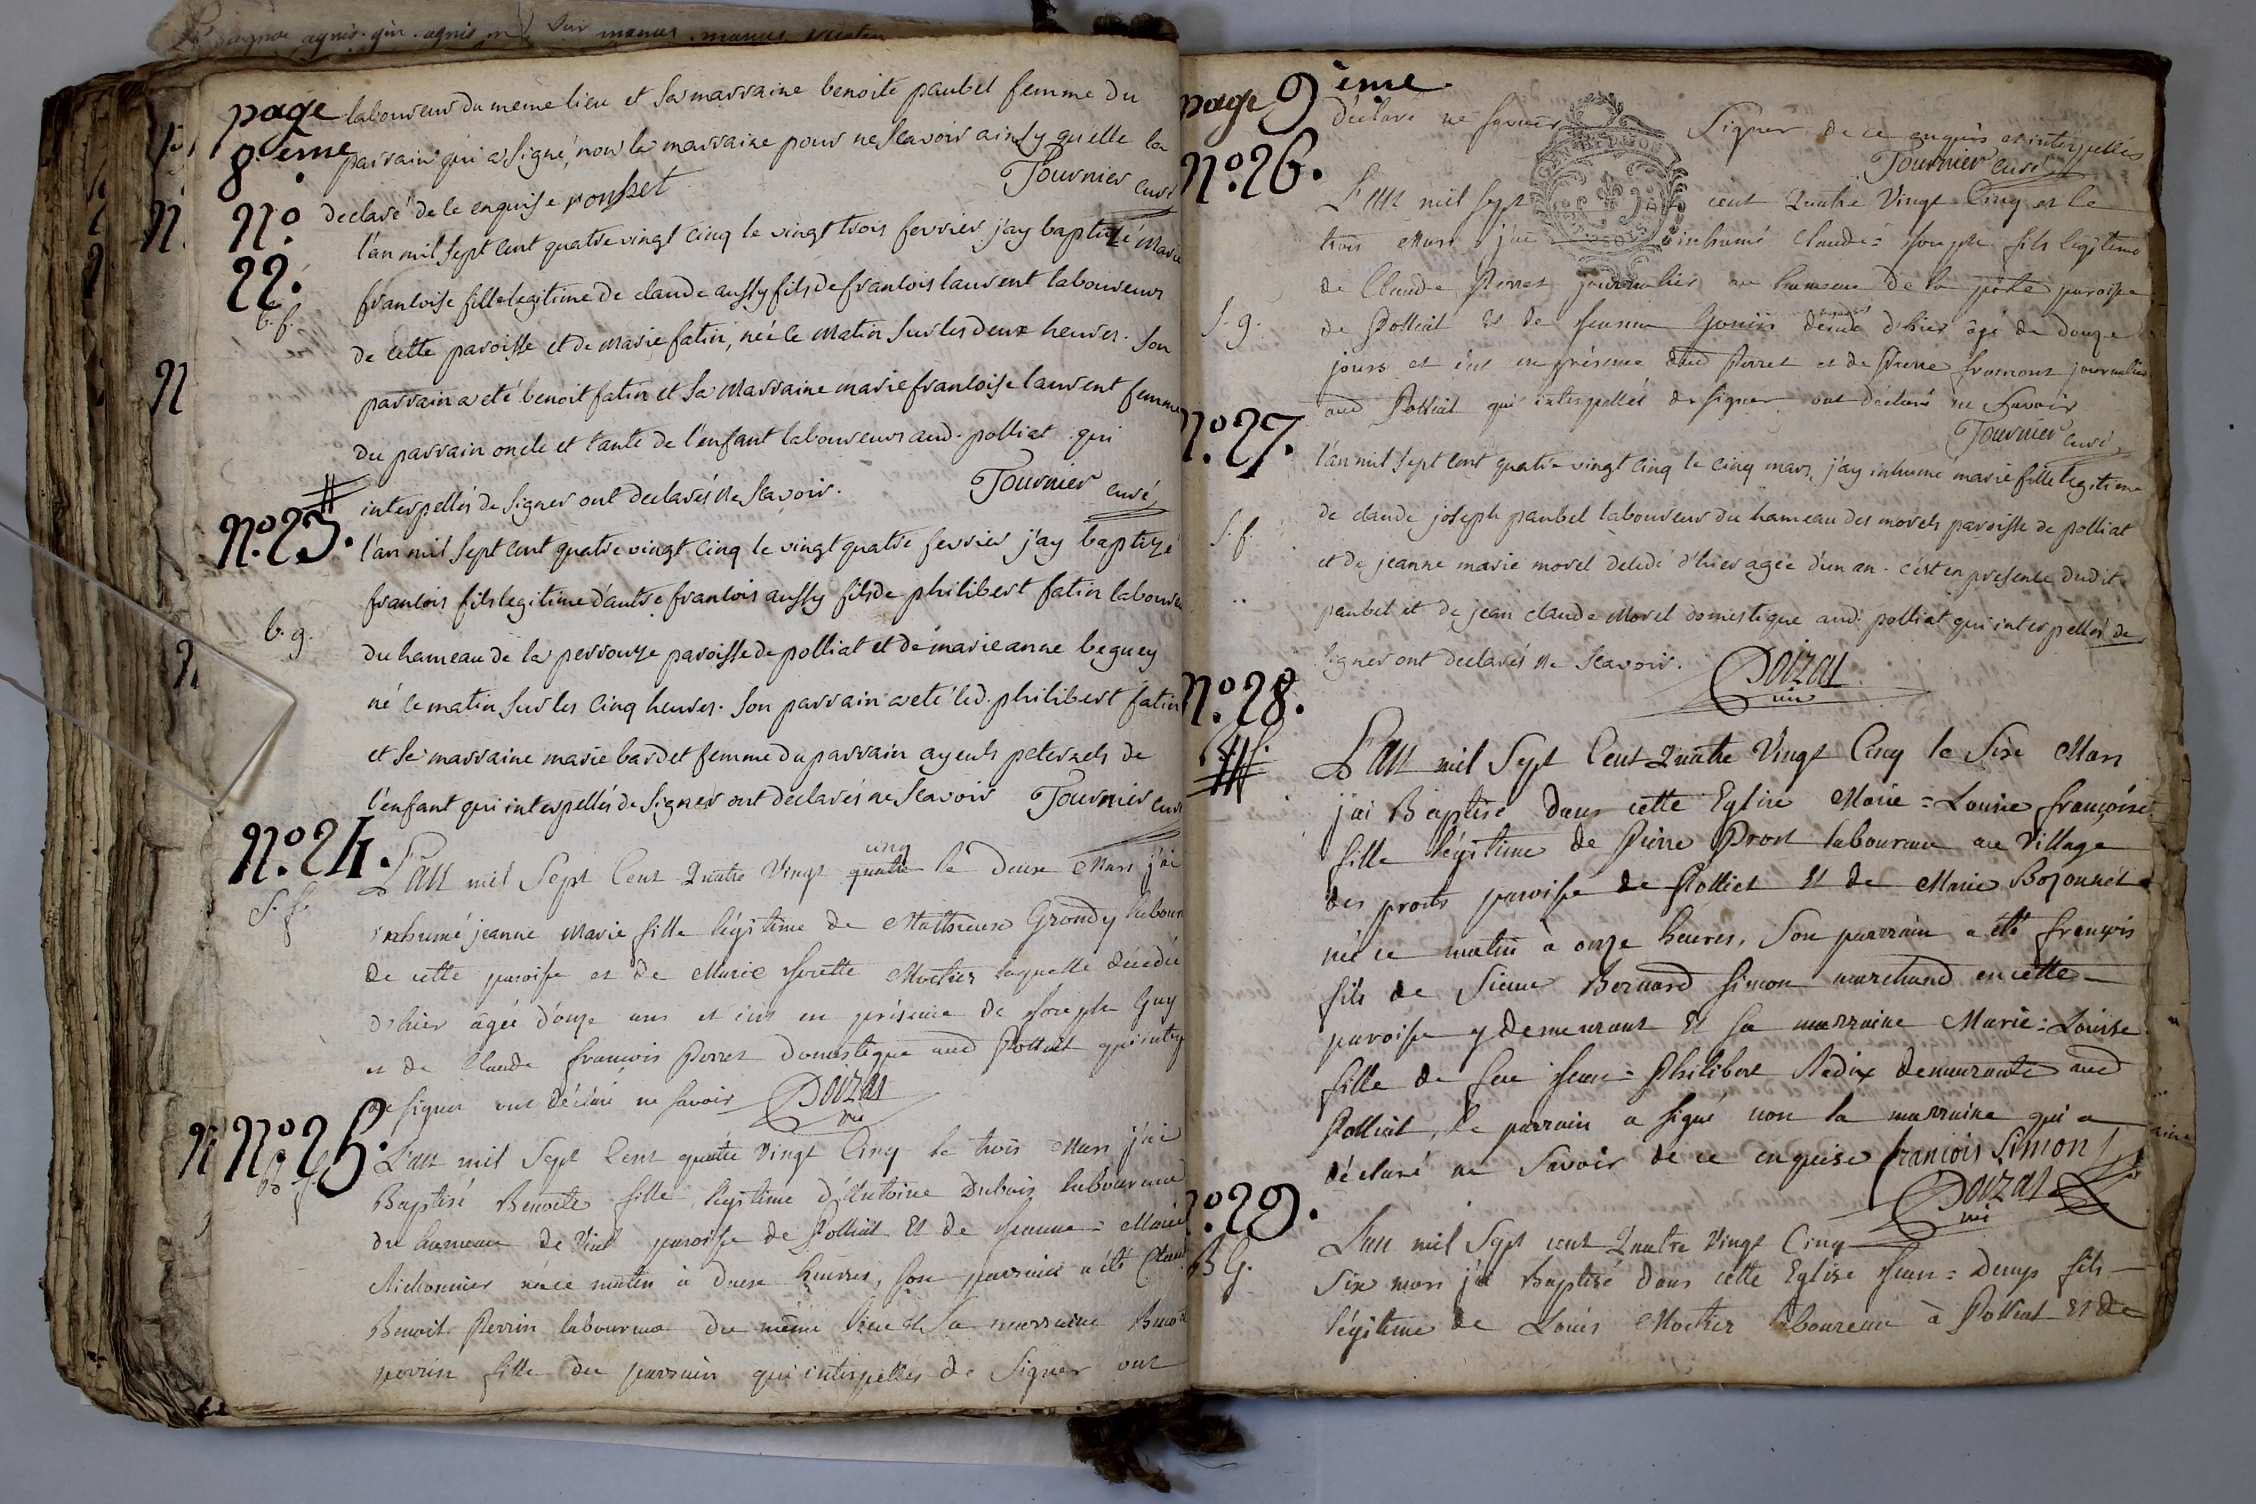 page 8.ème
laboureur du meme lieu et sa marraine benoite paubel femme du
parrain qui a signé, non la marraine pour ne scavoir ainsy quelle la
declaré de ce enquise ponsset Tournier curé
N.o 22.
b. f.
l'an mil sept cent quatre vingt cinq le vingt trois fevrier j'ay baptizé Marie
francoise fille legitime de claude aussy fils de francois laurent laboureurs
de cette paroisse et de marie fatin, née le matin sur les deux heures. Son
parrain a eté benoit fatin et sa Marraine marie francoise laurent femme
du parrain oncle et tante de l'enfant laboureurs aud. polliat qui
interpellés de signer ont declarés ne scavoir. Tournier curé
N.o 23.
b. g.
l'an mil sept cent quatre vingt cinq le vingt quatre fevrier j'ay baptizé
francois fils legitime d'autre francois aussy fils de philibert fatin laboureur
du hameau de la perrouze paroisse de polliat et de marie anne beguey
né le matin sur les cinq heures. Son parrain a eté led. philibert fatin
et sa marraine marie bardet femme du parrain ayeuls paternels de
l'enfant qui interpellés de signer ont declarés ne scavoir Tournier curé
N.o 24.
S. f.
L'an mil Sept Cent Quatre Vingt quatre cinq le Deux Mars j'ai
inhumé jeanne Marie fille légitime de Mathieux Grandy labour
de cette paroisse et de Marie Mochez laquelle décédée
d'hier âgée d'onze ans et ens en présence de Joseph Guy
et de Claude françois Perret Domestique aud Polliat qui interp
de signer ont déclaré ne savoir Doizat vic
N.o 25.
L'an mil Sept Cent quatre Vingt Cinq le trois Mars j'ai
Baptisé Benoite fille légitime d'Antoine Dubois laboureur
du hameau de paroisse de Polliat Et de Jeanne = Marie
Michonnier née ce matin à deux heures, son parrain a été Claud
Benoit Perrin laboureur du même lieu et sa marraine Benoite
perrin fille du parrain qui interpellés de Signer ont
page 9ème.
déclaré ne savoir Signer de ce enquis et interpellés
Tournier curé
N.o 26.
S. g.
L'an mil sept cent Quatre Vingt Cinq et le
trois Mars j'ai inhumé Claude = Joseph fils légitime
de Claude Perret journalier au hameau de la poste paroisse
de Polliat et de Jeanne Gonin décédé d'hier âgé de douze
jours et ens en présence dud Perret et de Pierre fromont journalier
aud Polliat qui interpellés de signer ont déclaré ne Savoir
Tournier curé
N.o 27.
S. f.
l'an mil sept cent quatre vingt cinq le cinq mars, j'ay inhume marie fille legitime
de claude joseph paubel laboureur du hameau des morels paroisse de polliat
et de jeanne marie morel decedé d'hier agée d'un an. c'est en presence dudit
paubel et de jean claude Morel domestique aud. polliat qui interpellés de
signer ont declarés ne Scavoir. Doizat vic
N.o 28.
L'an mil Sept Cent Quatre Vingt Cinq le Six Mars
j'ai Baptisé dans cette Eglise Marie = Louise françoise
fille légitime de Pierre Prost laboureur au Village
des prosts paroisse de Polliat Et de Marie Bozonnet
née ce matin à onze heures, Son parrain a été françois
fils de Sieur Bernard Simon marchand en cette
paroisse y demeurant Et sa marraine Marie = Louise
fille de feu Jean = Philibert Radix demeurante aud
Polliat, le parrain a signé non la marraine qui a
déclaré ne Savoir de ce enquise francois Simon
Doizat vic
N.o 29.
B G.
L'an mil Sept cent Quatre Vingt Cinq
Six mars j'ai Baptisé dans cette Eglise Jean = Denys fils
légitime de Louis Mochez laboureur à Polliat Et de